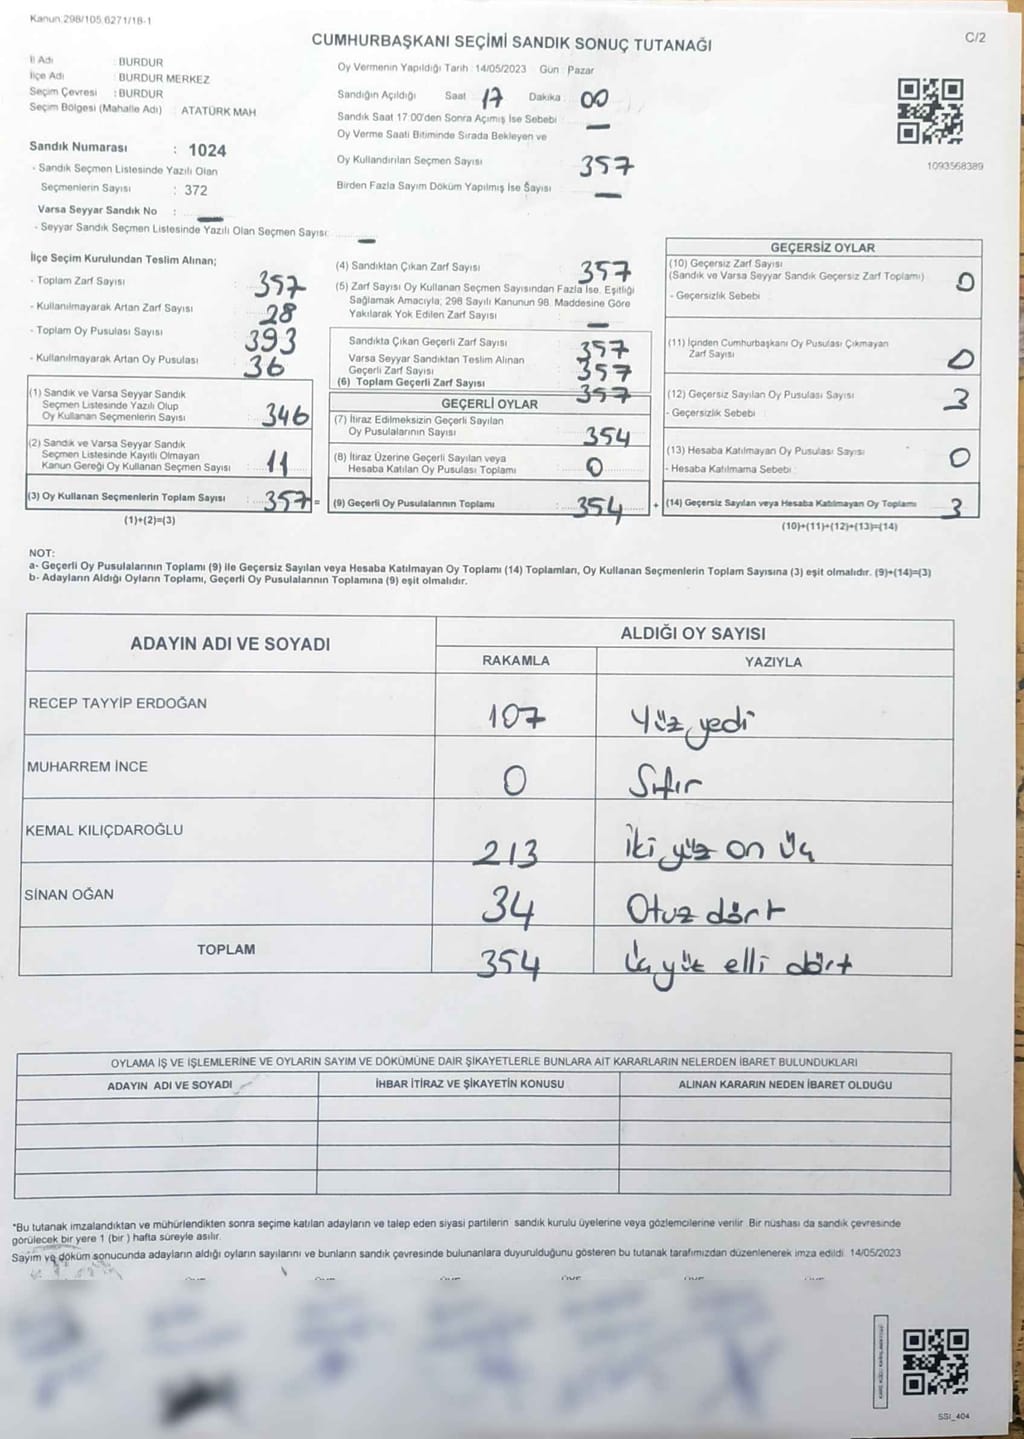 Kanun:298/105.6271/18-1
C/2
CUMHURBAŞKANI SEÇİMİ SANDIK SONUÇ TUTANAĞI
İl Adı : BURDUR
İlçe Adı : BURDUR MERKEZ
Seçim Çevresi : BURDUR
Seçim Bölgesi (Mahalle Adı) : ATATÜRK MAH
Sandık Numarası : 1024
- Sandık Seçmen Listesinde Yazılı Olan
Seçmenlerin Sayısı : 372
Varsa Seyyar Sandık No : —
- Seyyar Sandık Seçmen Listesinde Yazılı Olan Seçmen Sayısı: —
Oy Vermenin Yapıldığı Tarih : 14/05/2023 Gün : Pazar
Sandığın Açıldığı Saat 17 Dakika : 00
Sandık Saat 17:00'den Sonra Açımış İse Sebebi : —
Oy Verme Saati Bitiminde Sırada Bekleyen ve
Oy Kullandırılan Seçmen Sayısı : 357
Birden Fazla Sayım Döküm Yapılmış İse Sayısı : —
1093568389
İlçe Seçim Kurulundan Teslim Alınan;
- Toplam Zarf Sayısı : 357
- Kullanılmayarak Artan Zarf Sayısı : 28
- Toplam Oy Pusulası Sayısı : 393
- Kullanılmayarak Artan Oy Pusulası : 36
(1) Sandık ve Varsa Seyyar Sandık
Seçmen Listesinde Yazılı Olup
Oy Kullanan Seçmenlerin Sayısı : 346
(2) Sandık ve Varsa Seyyar Sandık
Seçmen Listesinde Kayıtlı Olmayan
Kanun Gereği Oy Kullanan Seçmen Sayısı : 11
(3) Oy Kullanan Seçmenlerin Toplam Sayısı : 357 =
(1)+(2)=(3)
(4) Sandıktan Çıkan Zarf Sayısı : 357
(5) Zarf Sayısı Oy Kullanan Seçmen Sayısından Fazla İse, Eşitliği
Sağlamak Amacıyla; 298 Sayılı Kanunun 98. Maddesine Göre
Yakılarak Yok Edilen Zarf Sayısı : —
Sandıkta Çıkan Geçerli Zarf Sayısı : 357
Varsa Seyyar Sandıktan Teslim Alınan
Geçerli Zarf Sayısı : 357
(6) Toplam Geçerli Zarf Sayısı : 357
GEÇERLİ OYLAR
(7) İtiraz Edilmeksizin Geçerli Sayılan
Oy Pusulalarının Sayısı : 354
(8) İtiraz Üzerine Geçerli Sayılan veya
Hesaba Katılan Oy Pusulası Toplamı : 0
(9) Geçerli Oy Pusulalarının Toplamı : 354 +
GEÇERSİZ OYLAR
(10) Geçersiz Zarf Sayısı
(Sandık ve Varsa Seyyar Sandık Geçersiz Zarf Toplamı) : 0
- Geçersizlik Sebebi :
(11) İçinden Cumhurbaşkanı Oy Pusulası Çıkmayan
Zarf Sayısı : 0
(12) Geçersiz Sayılan Oy Pusulası Sayısı : 3
- Geçersizlik Sebebi :
(13) Hesaba Katılmayan Oy Pusulası Sayısı : 0
- Hesaba Katılmama Sebebi :
(14) Geçersiz Sayılan veya Hesaba Katılmayan Oy Toplamı : 3
(10)+(11)+(12)+(13)=(14)
NOT:
a- Geçerli Oy Pusulalarının Toplamı (9) ile Geçersiz Sayılan veya Hesaba Katılmayan Oy Toplamı (14) Toplamları, Oy Kullanan Seçmenlerin Toplam Sayısına (3) eşit olmalıdır. (9)+(14)=(3)
b- Adayların Aldığı Oyların Toplamı, Geçerli Oy Pusulalarının Toplamına (9) eşit olmalıdır.
ADAYIN ADI VE SOYADI
ALDIĞI OY SAYISI
RAKAMLA YAZIYLA
RECEP TAYYİP ERDOĞAN 107 Yüz yedi
MUHARREM İNCE 0 Sıfır
KEMAL KILIÇDAROĞLU 213 İki yüz on üç
SİNAN OĞAN 34 Otuz dört
TOPLAM 354 Üç yüz elli dört
OYLAMA İŞ VE İŞLEMLERİNE VE OYLARIN SAYIM VE DÖKÜMÜNE DAİR ŞİKAYETLERLE BUNLARA AİT KARARLARIN NELERDEN İBARET BULUNDUKLARI
ADAYIN ADI VE SOYADI İHBAR İTİRAZ VE ŞİKAYETİN KONUSU ALINAN KARARIN NEDEN İBARET OLDUĞU
*Bu tutanak imzalandıktan ve mühürlendikten sonra seçime katılan adayların ve talep eden siyasi partilerin sandık kurulu üyelerine veya gözlemcilerine verilir. Bir nüshası da sandık çevresinde
görülecek bir yere 1 (bir ) hafta süreyle asılır.
Sayım ve döküm sonucunda adayların aldığı oyların sayılarını ve bunların sandık çevresinde bulunanlara duyurulduğunu gösteren bu tutanak tarafımızdan düzenlenerek imza edildi. 14/05/2023
SSI_404